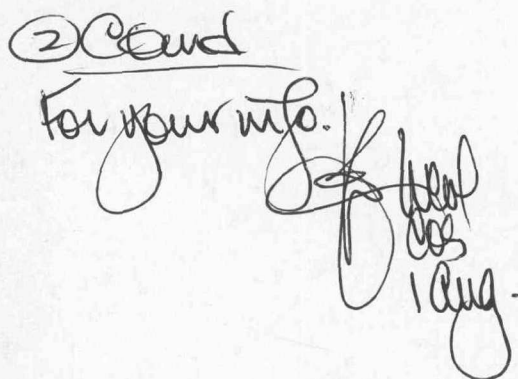 ② Comd
For your info.
COS
1 Aug.